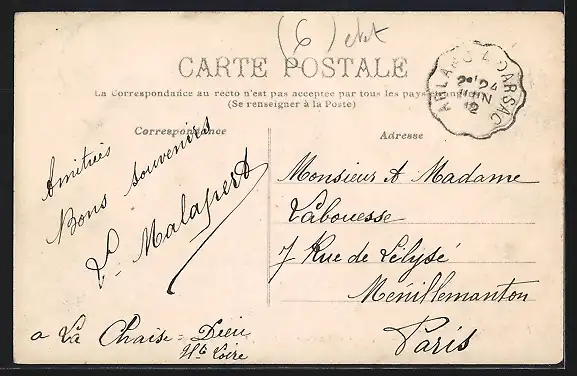 (6) etat
CARTE POSTALE
La Correspondance au recto n'est pas acceptée par tous les pays étrangers
(Se renseigner à la Poste)
ARLANC A DARSAC
24
JUIN
12
Correspondance
Adresse
Amitiés
Bons souvenirs
Malapert
a La Chaise-Dieu
Hte Loire
Monsieur et Madame
Labouesse
7 Rue de Lelysé
Ménillemanton
Paris